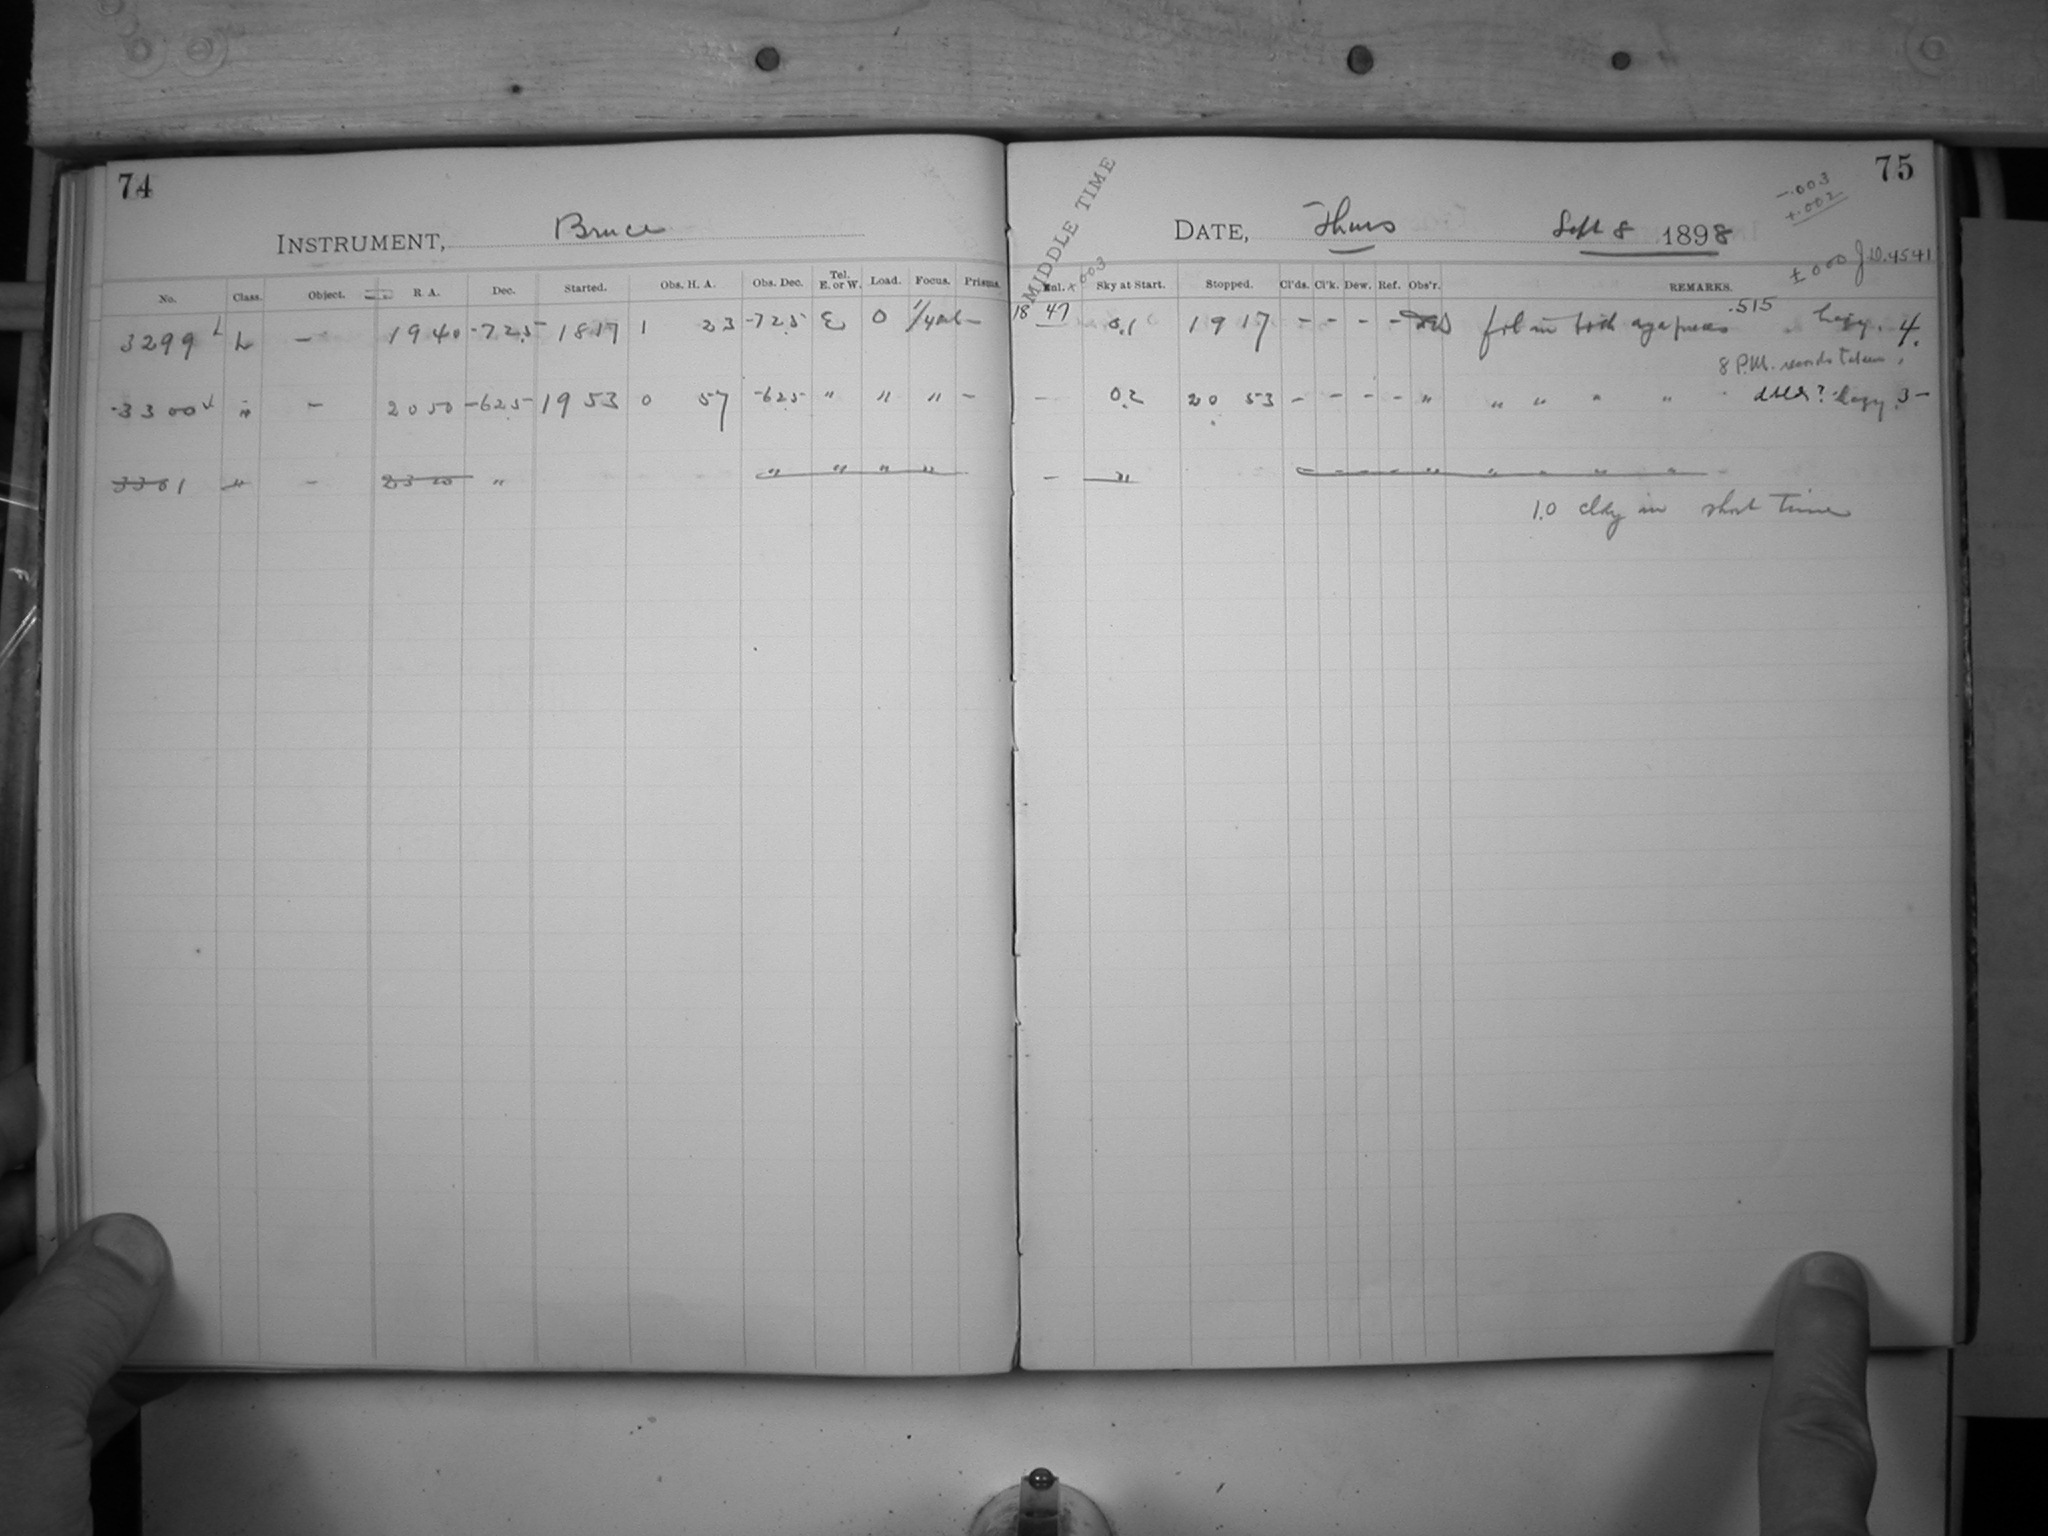 74
INSTRUMENT, Bruce
No. Class. Object. R. A. Dec. Started. Obs. H. A. Obs. Dec. Tel. E. or W. Load. Focus. Prisms.
3299 L – 19 40 -72.5 18 17 1 23 -72.5 E 0 –
3300 " – 20 50 -62.5 19 53 0 57 -62.5 " " " –
3301 " – 23 20 " " " " "
75
-.003
+.002
MIDDLE TIME
DATE, Thurs Sept 8 1898
±.000 J.D. 4541
.003
Enl. Sky at Start. Stopped. Cl'ds. Cl'k. Dew. Ref. Obs'r. REMARKS.
18 47 0.1 19 17 – – – – fol in both .515 hazy. 4.
8 P.M. records taken
– 0.2 20 53 – – – – " " " " " ? hazy. 3–
– " – – – – " " " " "
1.0 cldy in short time